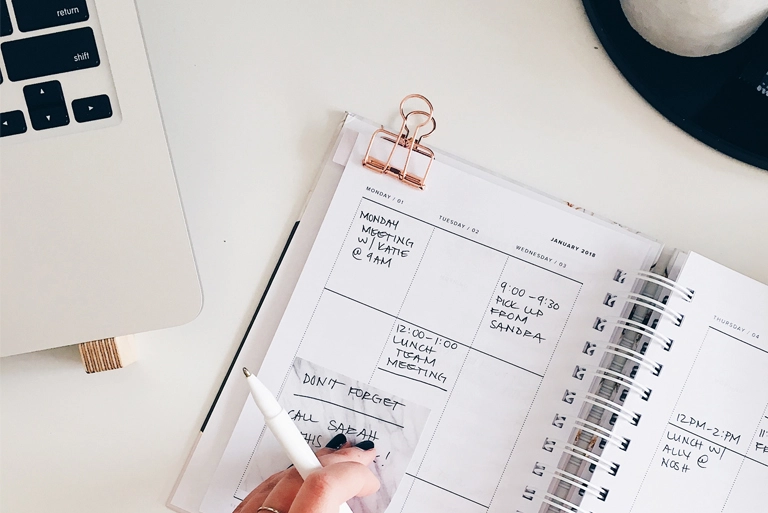 return
shift
JANUARY 2018
MONDAY / 01
TUESDAY / 02
WEDNESDAY / 03
MONDAY
MEETING
W/ KATIE
@ 9AM
9:00-9:30
PICK UP
FROM
SANDRA
12:00-1:00
LUNCH
TEAM
MEETING
DON'T FORGET
CALL SARAH
THURSDAY / 04
12PM-2PM
LUNCH W/
ALLY @
NOSH